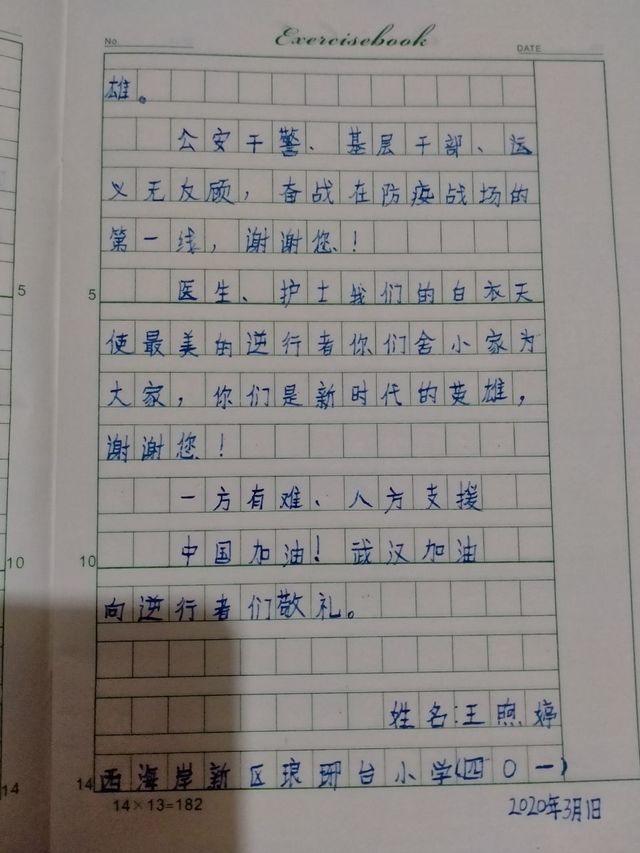 No.
Exercisebook
DATE
雄。
公安干警、基层干部、运
义无反顾，奋战在防疫战场的
第一线，谢谢您！
5
5
医生、护士我们的白衣天
使最美的逆行者你们舍小家为
大家，你们是新时代的英雄，
谢谢您！
一方有难、八方支援
10
10
中国加油！武汉加油
向逆行者们敬礼。
姓名：王煦婷
14
14
西海岸新区琅琊台小学(四〇一)
14×13=182
2020年3月1日